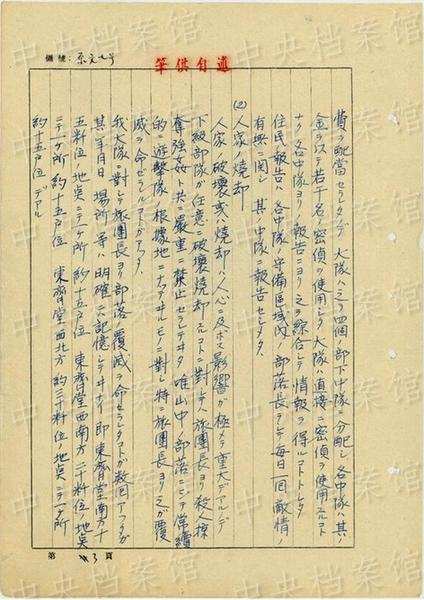 編號:
筆供自適
費ヲ配當セラレタノデ大隊ハ之ヲ四個ノ部下中隊ニ分配シ各中隊ハ其ノ
金ヲ以テ若干名ノ密偵ヲ使用シタ大隊ハ直接ニ密偵ヲ使用スルコト
ナク各中隊ヨリノ報告ニヨリ之ヲ綜合シテ情報ヲ得ルコトトシタ
住民報告ハ各中隊ノ守備区域内ノ部落長ヲシテ毎日一回敵情ノ
有無ニ関シ其ノ中隊ニ報告セシメタ。
(2)人家ノ焼却
人家ノ破壊或ハ焼却ハ人心ニ及ボス影響ガ極メテ重大デアルノデ
下級部隊ガ任意ニ破壊焼却スルコトニ対シテハ旅團長ヨリ殺人掠
奪強姦ト共ニ嚴重ニ禁止セラレテヰタ唯山中ノ部落ニシテ常續
的ノ遊撃隊根據地ニナッテヰルモノニ對シ特ニ旅團長ヨリ之ガ覆
滅ヲ命ゼラルルコトガアッタ。
我大隊ニ對シテ旅團長ヨリ部落ノ覆滅ヲ命セラレタコトガ数回アッタガ
其年月日場所等ハ明確ニハ記憶シテヰナイ即東齊堂南方十
五粁位ノ地点ニテ一ケ所約十五戸位東齊堂西南方二十粁位ノ地点
ニテ一ケ所約十五戸位東齊堂西北方約三十粁位ノ地点ニテ一ケ所
約十五戸位デアル
第 3 頁
中央档案馆